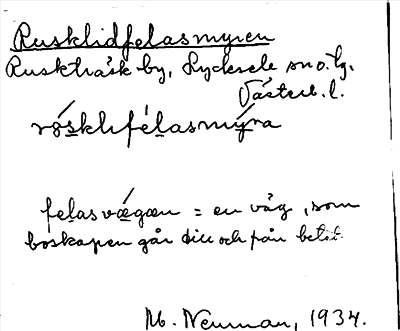 Rusklidfelasmyren
Ruskträsk by, Lycksele sn o. tg.
Västerb. l.
rösklıfélasmýra
felasvǽgæn = en väg, som
boskapen går till och från betet.
M. Neuman, 1934.